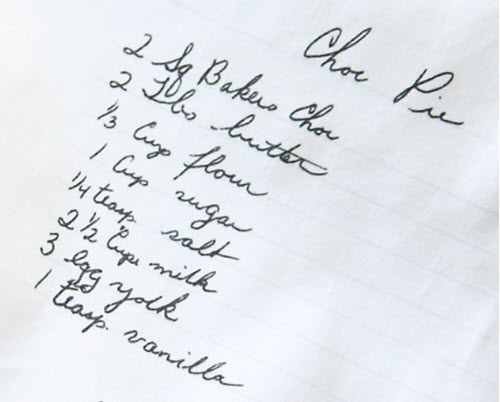 Choc Pie
2 Sq Bakers Choc
2 Tbs butter
1/3 Cup flour
1 Cup sugar
1/4 teasp. salt
2 1/2 Cups milk
3 egg yolk
1 teasp. vanilla